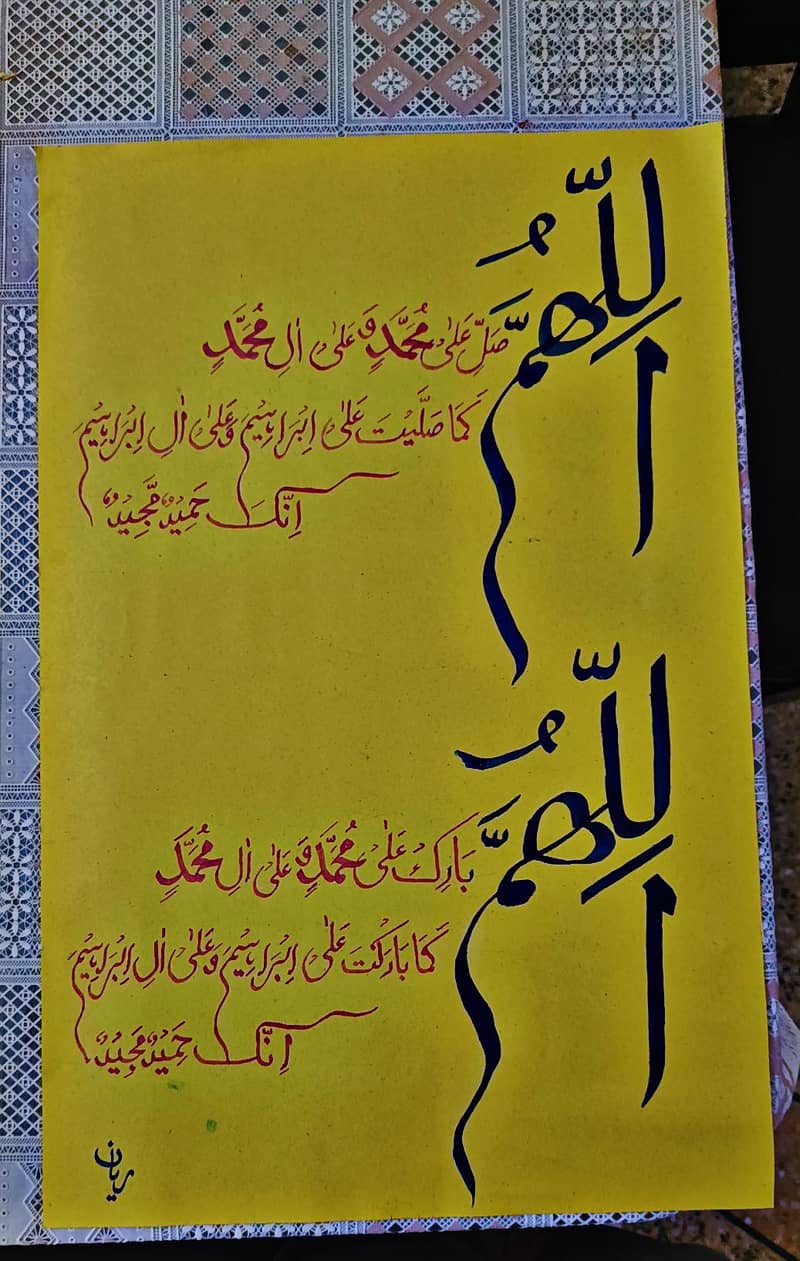 اللّٰهُمَّ
صَلِّ عَلٰی مُحَمَّدٍ وَ عَلٰی اٰلِ مُحَمَّدٍ
کَمَا صَلَّیْتَ عَلٰی اِبْرَاہِیْمَ وَعَلٰی اٰلِ اِبْرَاہِیْمَ
اِنَّکَ حَمِیْدٌ مَّجِیْدٌ
اللّٰهُمَّ
بَارِکْ عَلٰی مُحَمَّدٍ وَ عَلٰی اٰلِ مُحَمَّدٍ
کَمَا بَارَکْتَ عَلٰی اِبْرَاہِیْمَ وَعَلٰی اٰلِ اِبْرَاہِیْمَ
اِنَّکَ حَمِیْدٌ مَجِیْدٌ
ریان